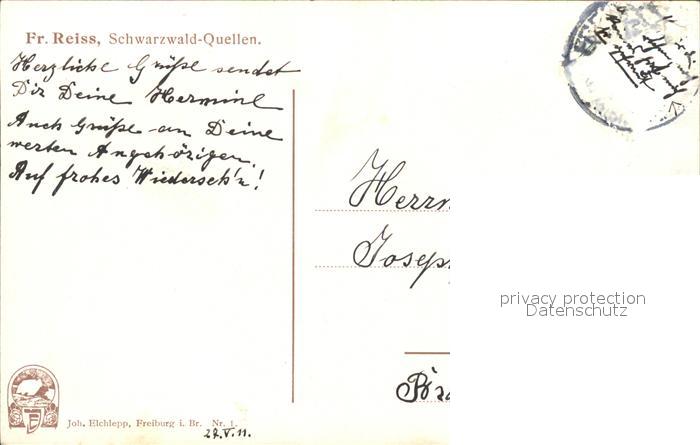 Fr. Reiss, Schwarzwald-Quellen.
Herzliche Grüße sendet
Dir Deine Hermine
Auch Grüße an Deine
werten Angehörigen.
Auf frohes Wiederseh'n!
Herrn
Joseph
privacy protection
Datenschutz
Joh. Elchlepp, Freiburg i. Br. Nr. 1.
27.V.11.